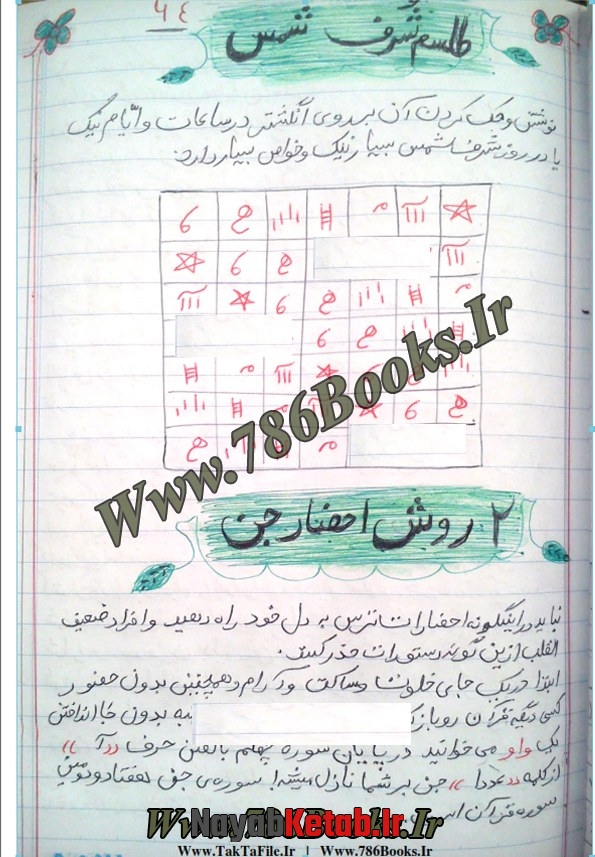 ٦٤
طلسم شرف شمس
نوشتن و حک کردن آن بر روی انگشتر در ساعات و ایام نیک
یا در روز شرف شمس بسیار نیک و خواص بسیار دارد:
Www.786Books.Ir
۲ روش احضار جن
نباید در اینگونه احضارات ترس به دل خود راه دهید و افراد ضعیف
القلب ازین گونه دستورات حذر کنند.
ابتدا در یک جای خلوت و ساکت و آرام و همچنین بدون حضور
کسی دیگه قرآن رو باز به بدون جا انداختن
یک واو می خوانید در پایان سوره چهلم با گفتن حرف ((آ))
از کلمه ((عددا)) جن بر شما نازل میشه! سوره‌ی جن هفتاد و دومین
سوره قرآن است
Www.786Books.Ir
NayabKetab.Ir
Www.TakTaFile.Ir | Www.786Books.Ir